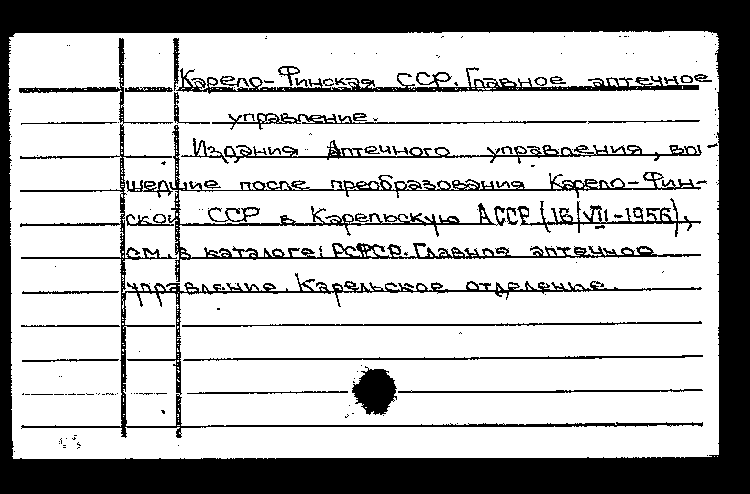 Карело-Финская ССР. Главное аптечное
управление.
Издания Аптечного управления, вы-
шедшие после преобразования Карело-Фин-
ской ССР в Карельскую АССР (16/VII-1956),
см. в каталоге: РСФСР. Главное аптечное
управление. Карельское отделение.